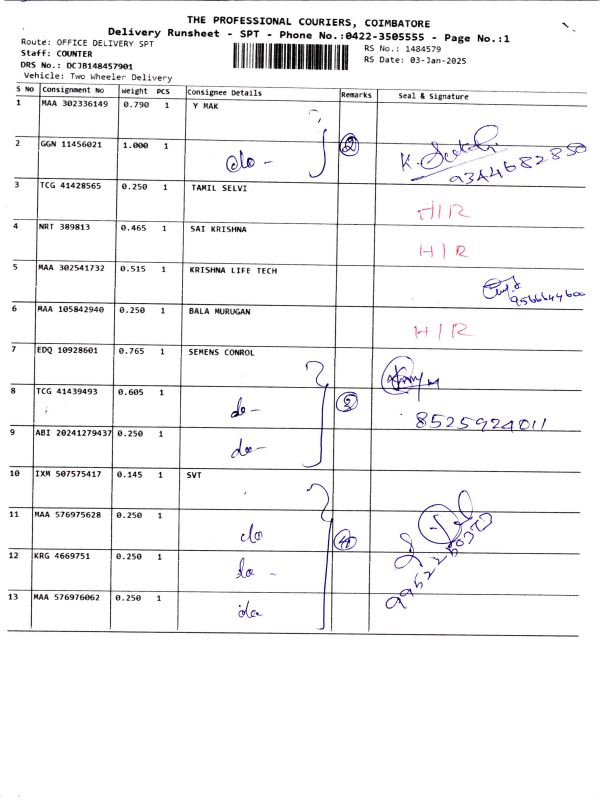 THE PROFESSIONAL COURIERS, COIMBATORE
Delivery Runsheet - SPT - Phone No.:0422-3505555 - Page No.:1
Route: OFFICE DELIVERY SPT
RS No.: 1484579
Staff: COUNTER
RS Date: 03-Jan-2025
DRS No.: DCJB148457901
Vehicle: Two Wheeler Delivery
S NO Consignment No Weight PCS Consignee Details Remarks Seal & Signature
1 MAA 302336149 0.790 1 Y MAK
2 GGN 11456021 1.000 1 do - 2 K. 9344682850
3 TCG 41428565 0.250 1 TAMIL SELVI H/R
4 NRT 389813 0.465 1 SAI KRISHNA H/R
5 MAA 302541732 0.515 1 KRISHNA LIFE TECH
6 MAA 105842940 0.250 1 BALA MURUGAN H/R
7 EDQ 10928601 0.765 1 SEMENS CONROL
8 TCG 41439493 0.605 1 do - 8525924011
9 ABI 20241279437 0.250 1 do -
10 IXM 507575417 0.145 1 SVT
11 MAA 576975628 0.250 1 do 4
12 KRG 4669751 0.250 1 do -
13 MAA 576976062 0.250 1 do